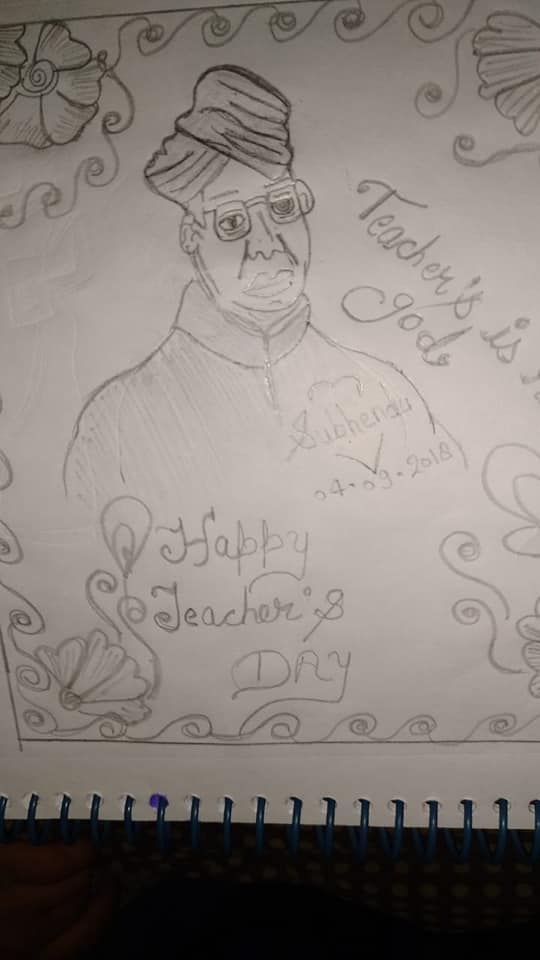 Teacher's is
god
Subhendu
04.09.2018
Happy
Teacher's
DAY